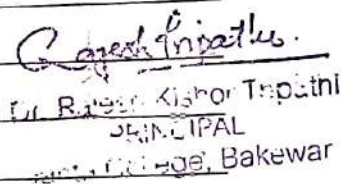 Rajesh Tripathi.
Dr. Rajesh Kishor Tripathi
PRINCIPAL
College, Bakewar